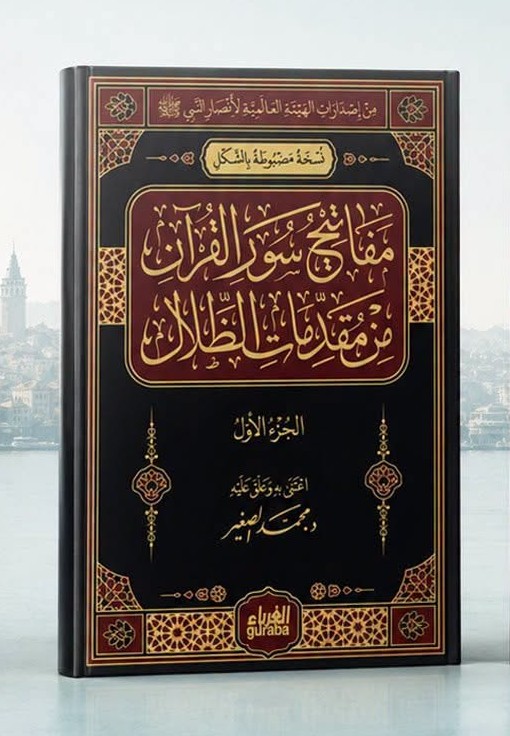 مِنْ إِصْدَارَاتِ الهَيْئَةِ العَالَمِيَّةِ لِأَنْصَارِ النَّبِي ﷺ
نُسْخَةٌ مَضْبُوطَةٌ بِالشَّكْلِ
مَفَاتِيحُ سُوَرِ القُرْآنِ
مِنْ مُقَدِّمَاتِ الظِّلَالِ
الجُزْءُ الأَوَّلُ
اعْتَنَى بِهِ وَعَلَّقَ عَلَيْهِ
د. محمد الصغير
الغرباء
guraba